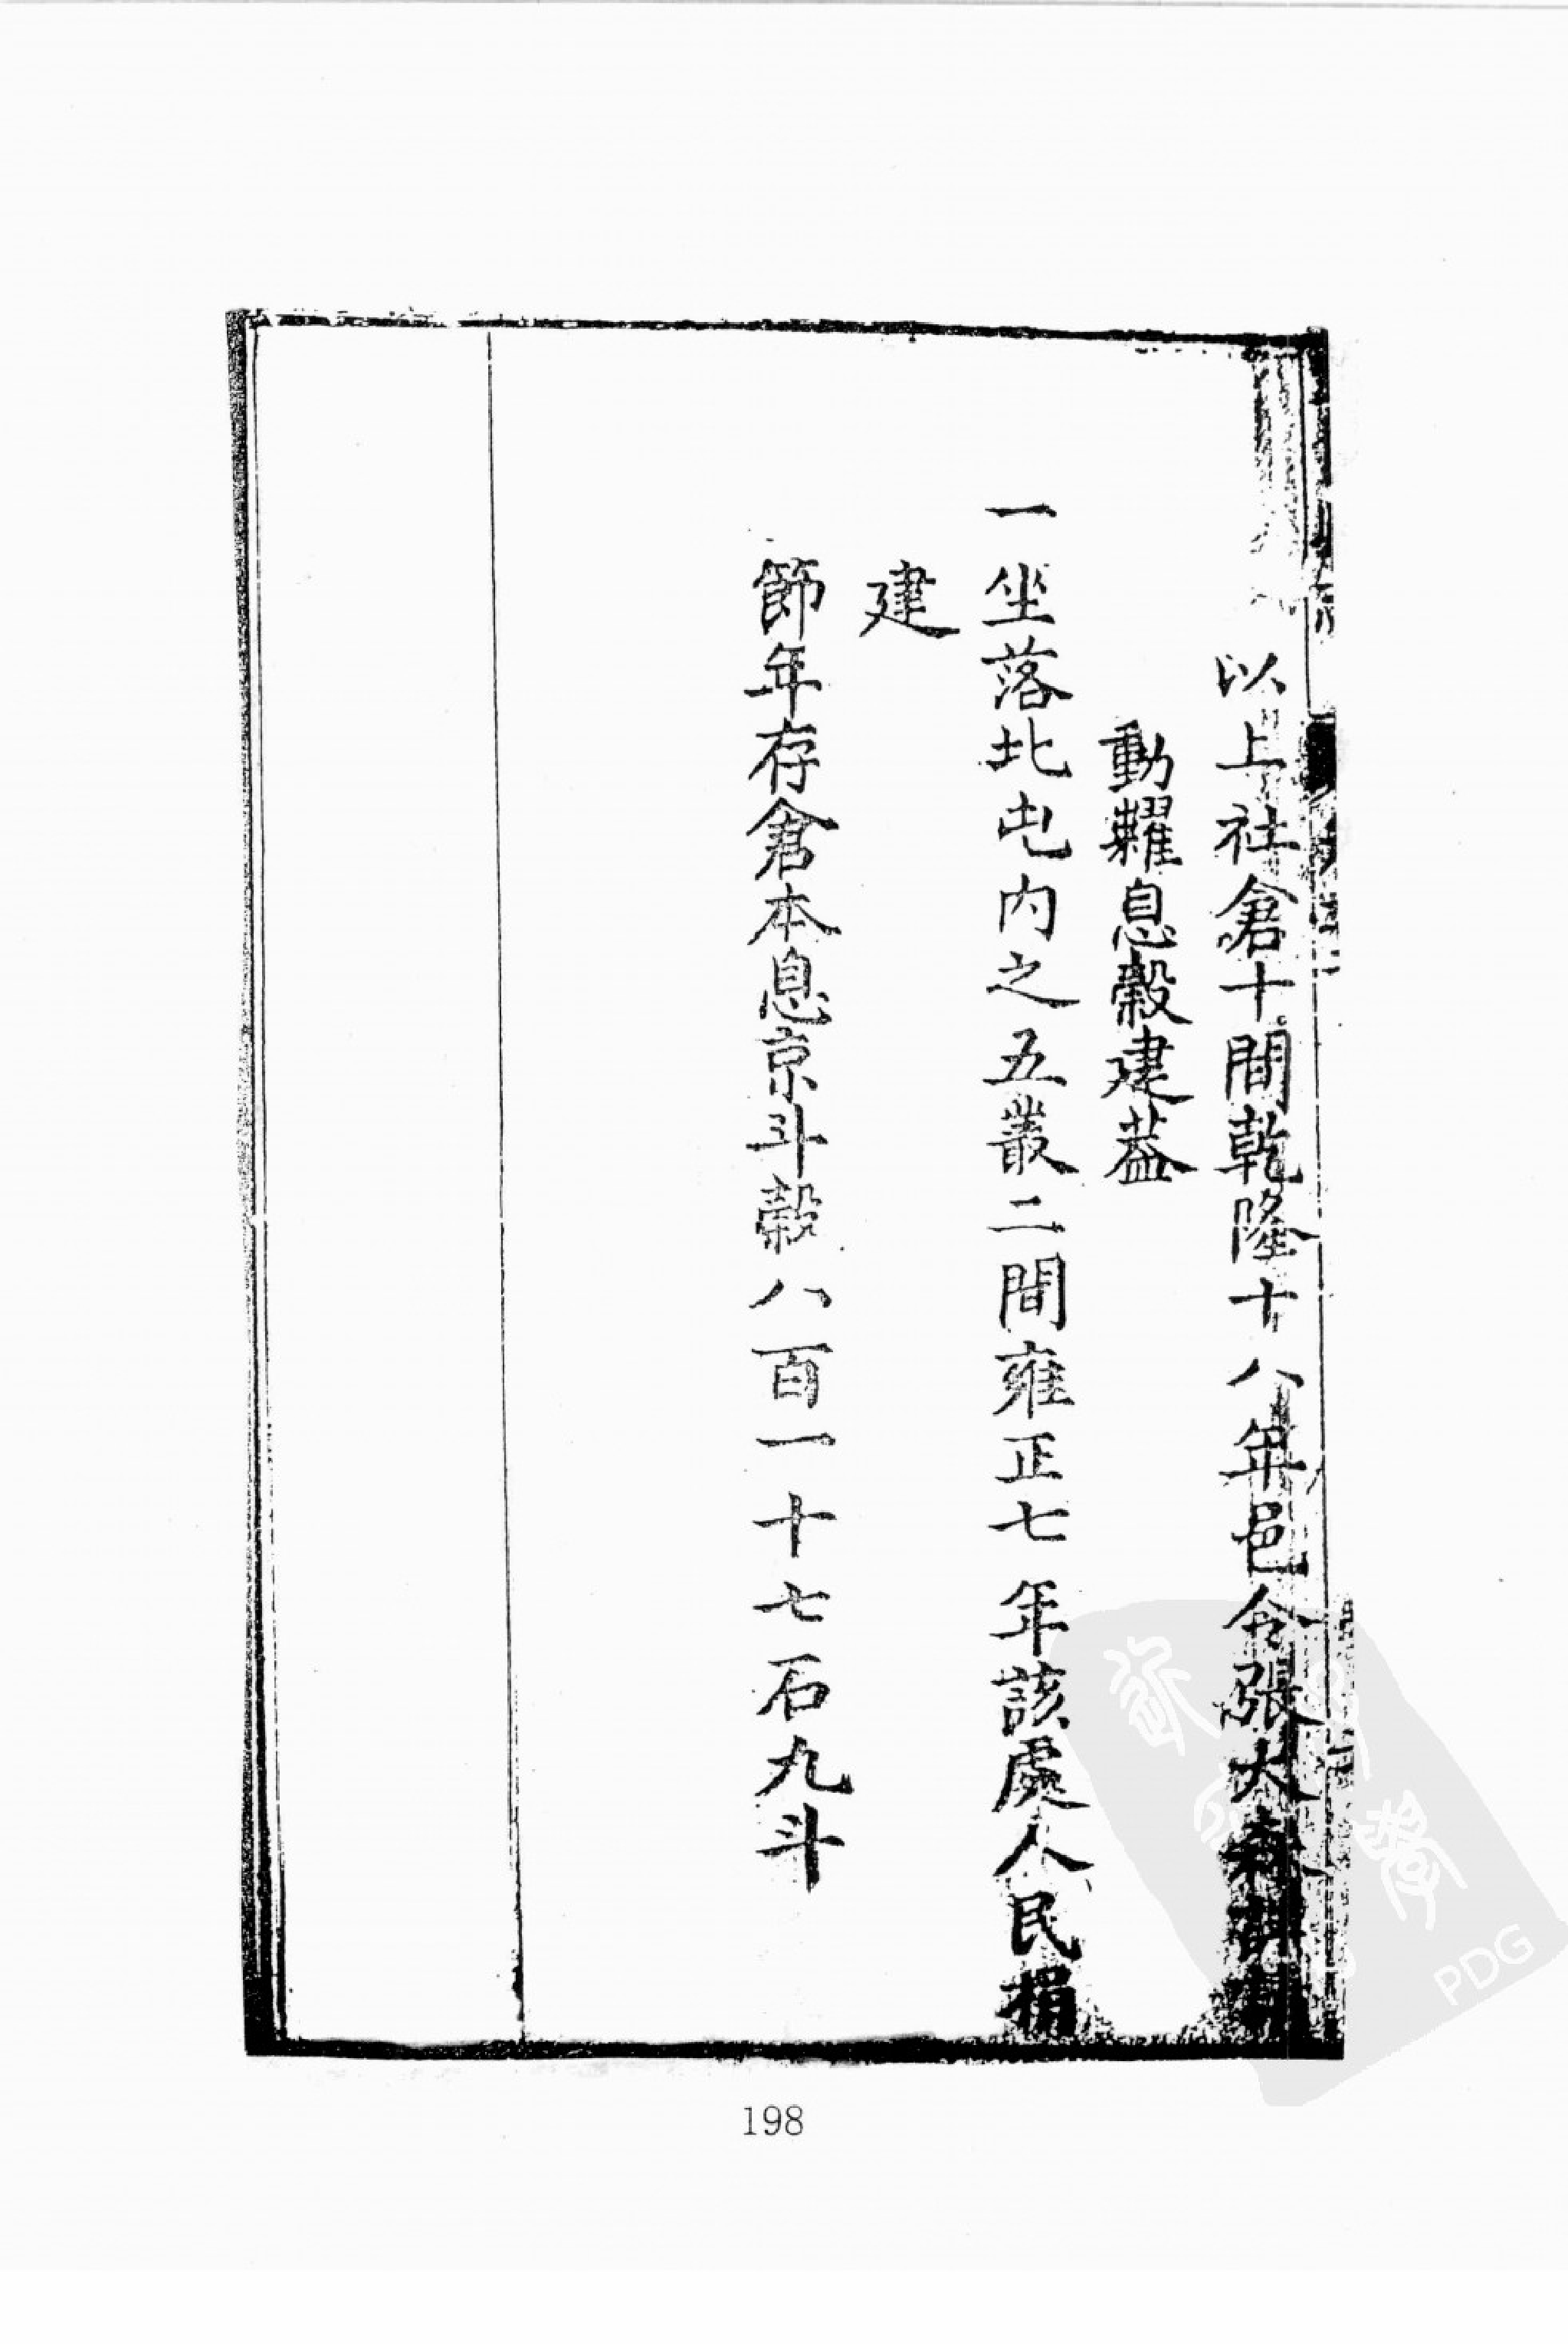 以上社倉十間乾隆十八年邑令張大森詳請
動糶息穀建葢
一坐落北屯内之五叢二間雍正七年該處人民捐
建
節年存倉本息京斗穀八百一十七石九斗
198
PDG